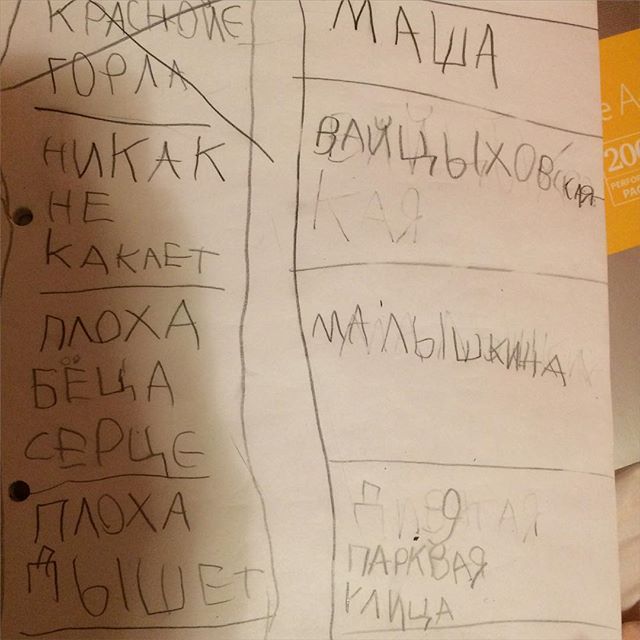 КРАСНОЙЕ
ГОРЛА
НИКАК
НЕ
КАКАЕТ
ПЛОХА
БЁЦА
СЕРЦЕ
ПЛОХА
ДЫШЕТ
МАША
ВАЙЦЫХОВСКАЯ
КАЯ
МАЛЫШКИНА
9
ПАРКВАЯ
УЛИЦА
e A
200